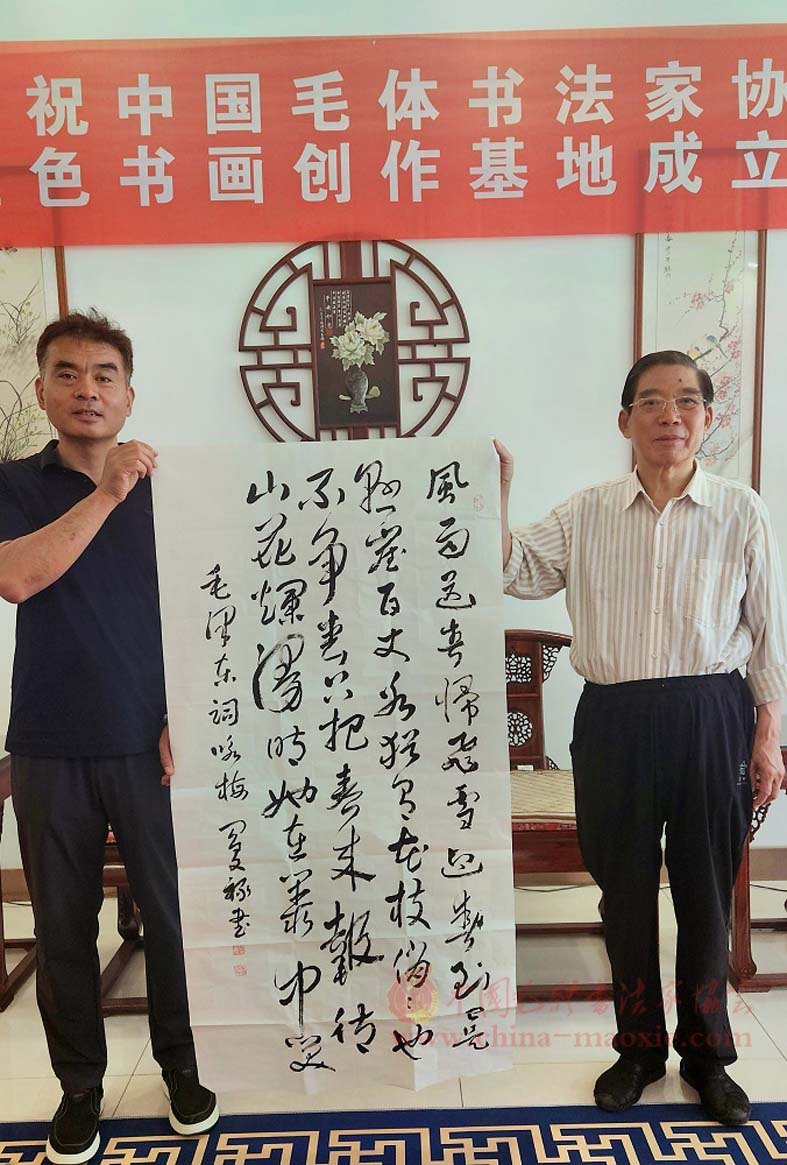 祝中国毛体书法家协
色书画创作基地成立
風雨送春歸飛雪迎春到已是
懸崖百丈冰猶有花枝俏〻也
不争春只把春来報待
山花爛漫時她在叢中笑
毛泽东词咏梅 书
中国毛體書法家協会
www.china-maoxie.com